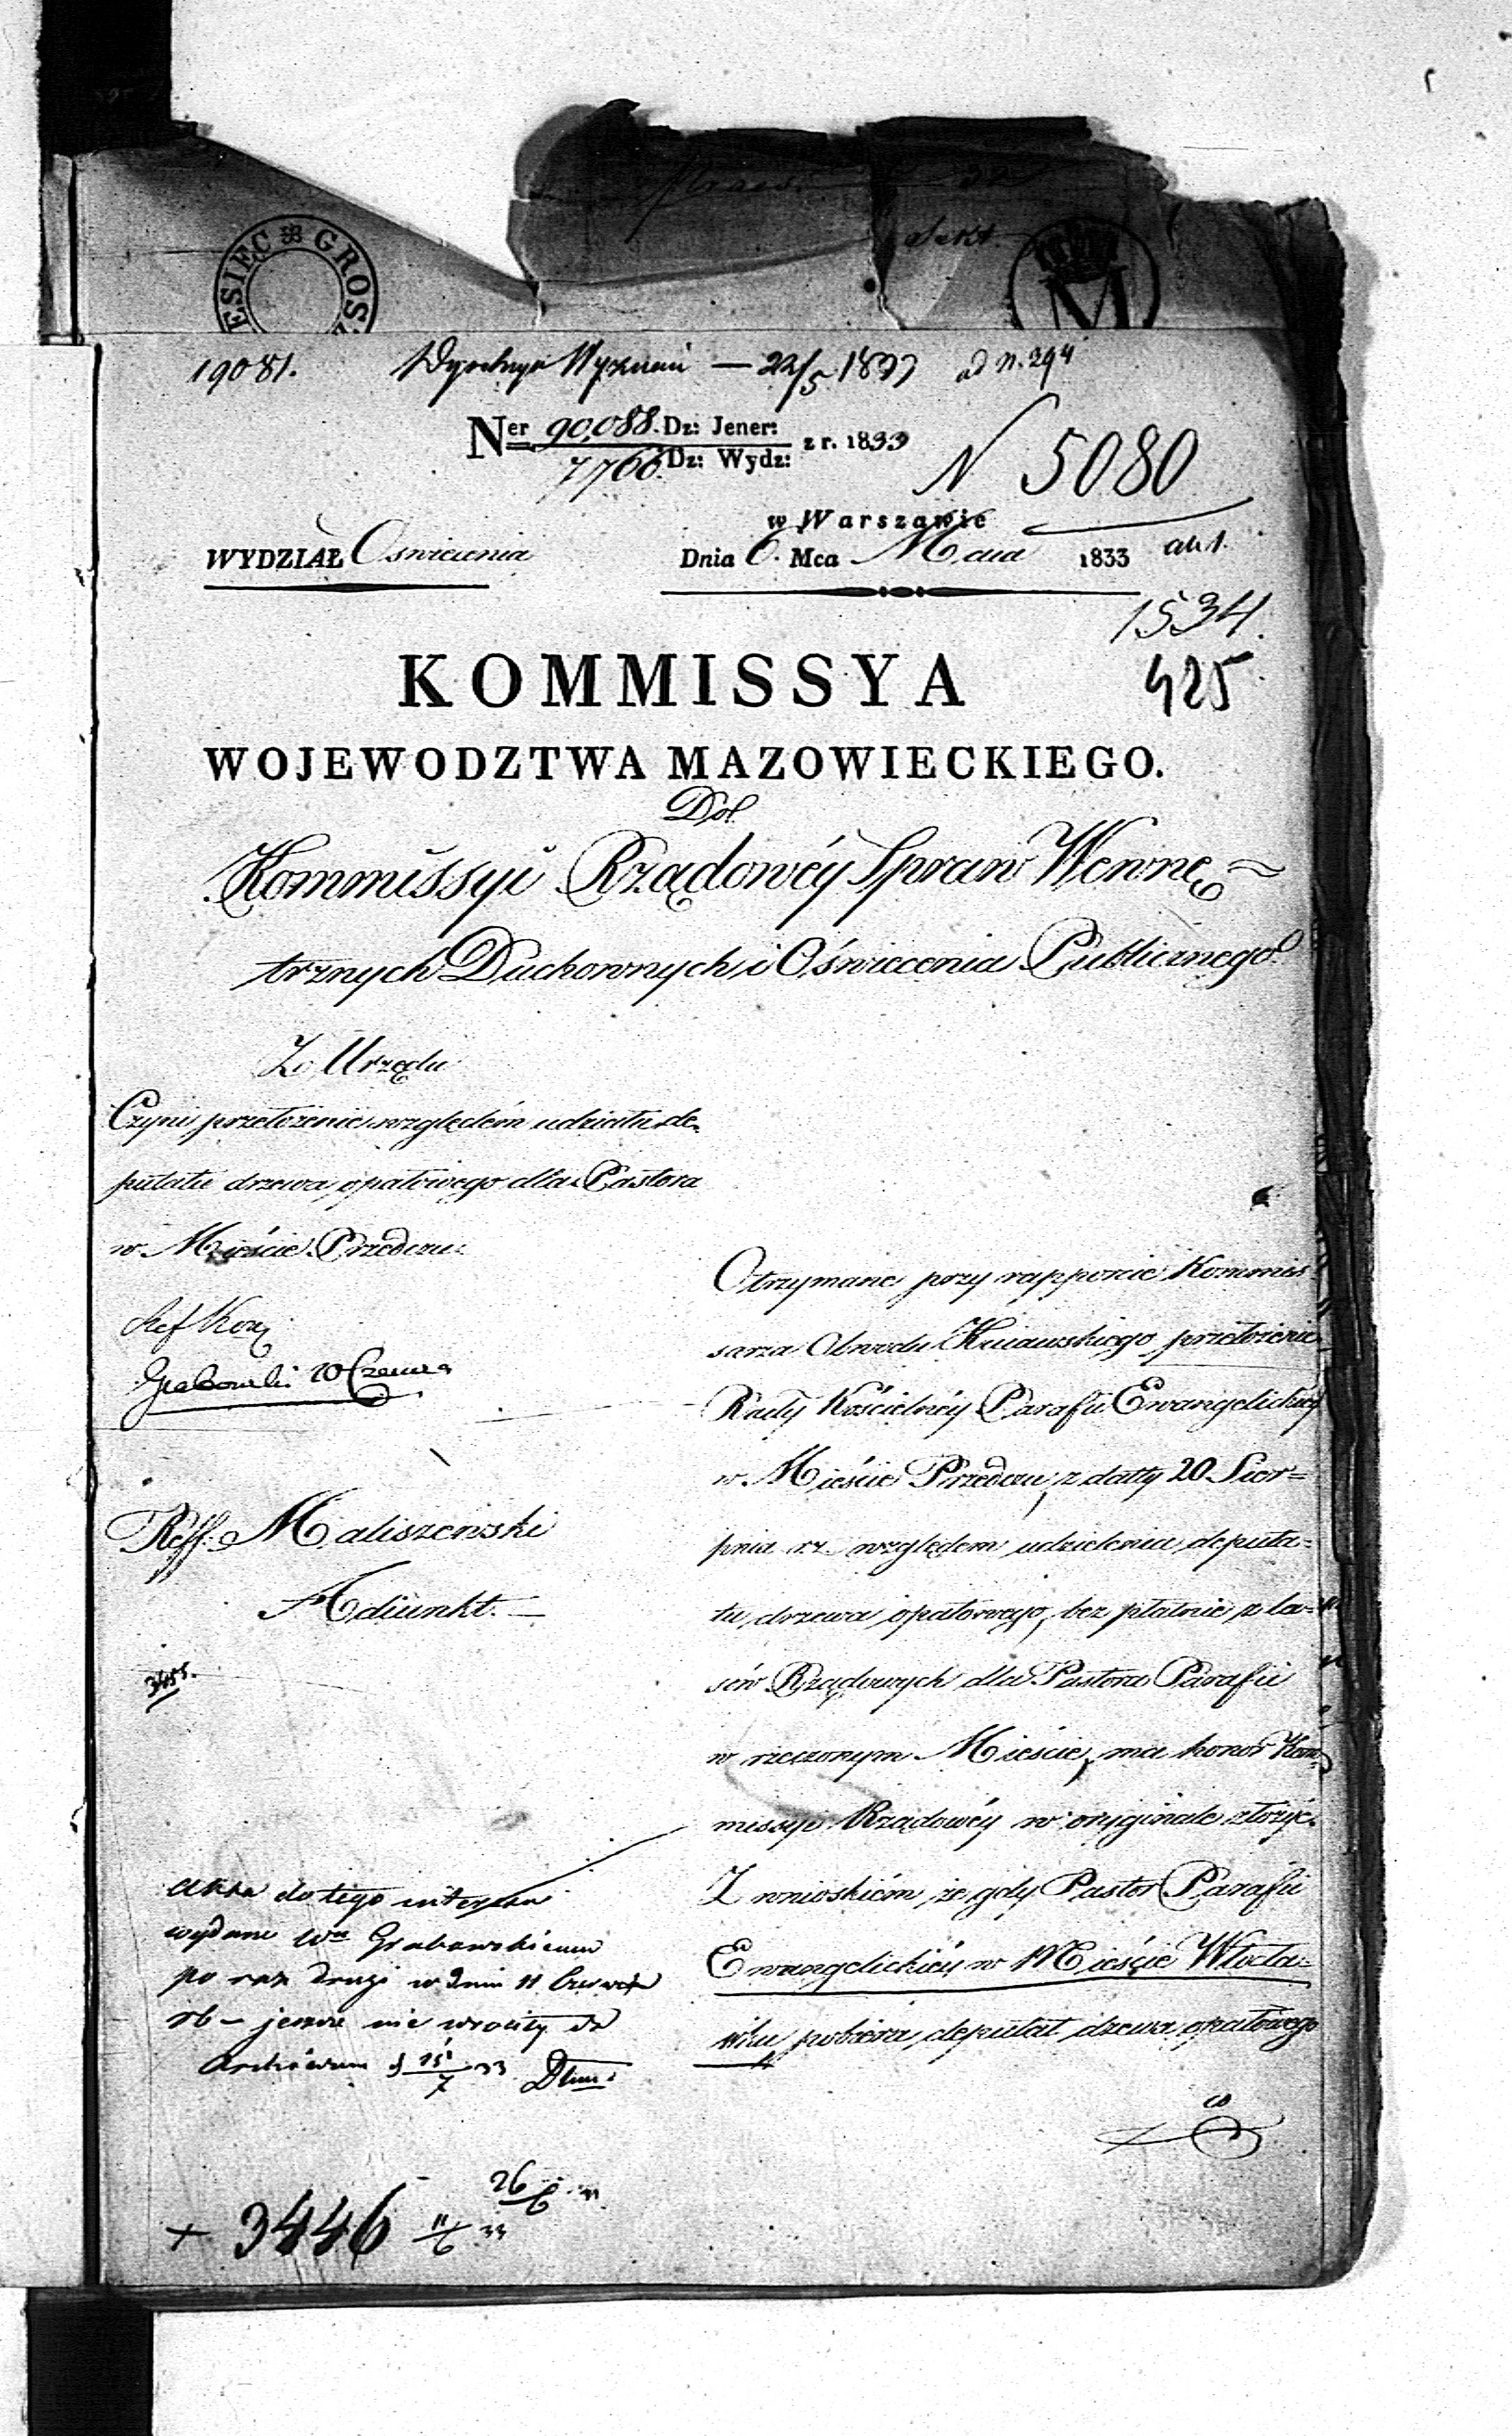 ESIEC ❊ GROS
M
19081. Wyznań — 22/5 1833 ad N. 294
Ner 90,088. Dz: Jener: z r. 1833
7766. Dz: Wydz:
N 5080
w Warszawie
WYDZIAŁ Oświecenia Dnia 6. Mca Maia 1833
1534.
425
KOMMISSYA
WOJEWODZTWA MAZOWIECKIEGO.
Do
Kommissyi Rządowéy Spraw Wewnę=
trznych Duchownych i Oświecenia Publicznego
Z Urzędu
Czyni przełożenie względem udziału de=
putatu drzewa opałowego dla Pastora
w Mieście Przedczu.
Ref Korz
Grabowski 10 Czerwca
Reff: Maliszewski
Adiunkt. —
3455.
Otrzymane przy rapporcie Kommis
sarza Obwodu Kuiawskiego przełożenie
Rady Kościelnéy Parafii Ewangelickiey
w Mieście Przedczu z datty 20 Sier=
pnia r.z. względem udzielenia deputa=
tu drzewa opałowego, bez płatnie z la=
sów Rządowych dla Pastora Parafii
w rzeczonym Mieście, ma honor Kom
missyi Rządowéy w oryginale złożyć.
Z wnioskiem że gdy Pastor Parafii
Ewangelickiéy w Mieście Włocła=
wku pobiera deputat drzewa opałowego
co
Akta do tego interessu
wydane Wu Grabowskiemu
po raz drugi w dniu 11 Czerwca
rb — jeszcze nie wróciły do
Archiwum d 15/7 33
26/6 33
+ 3446 11/6 33